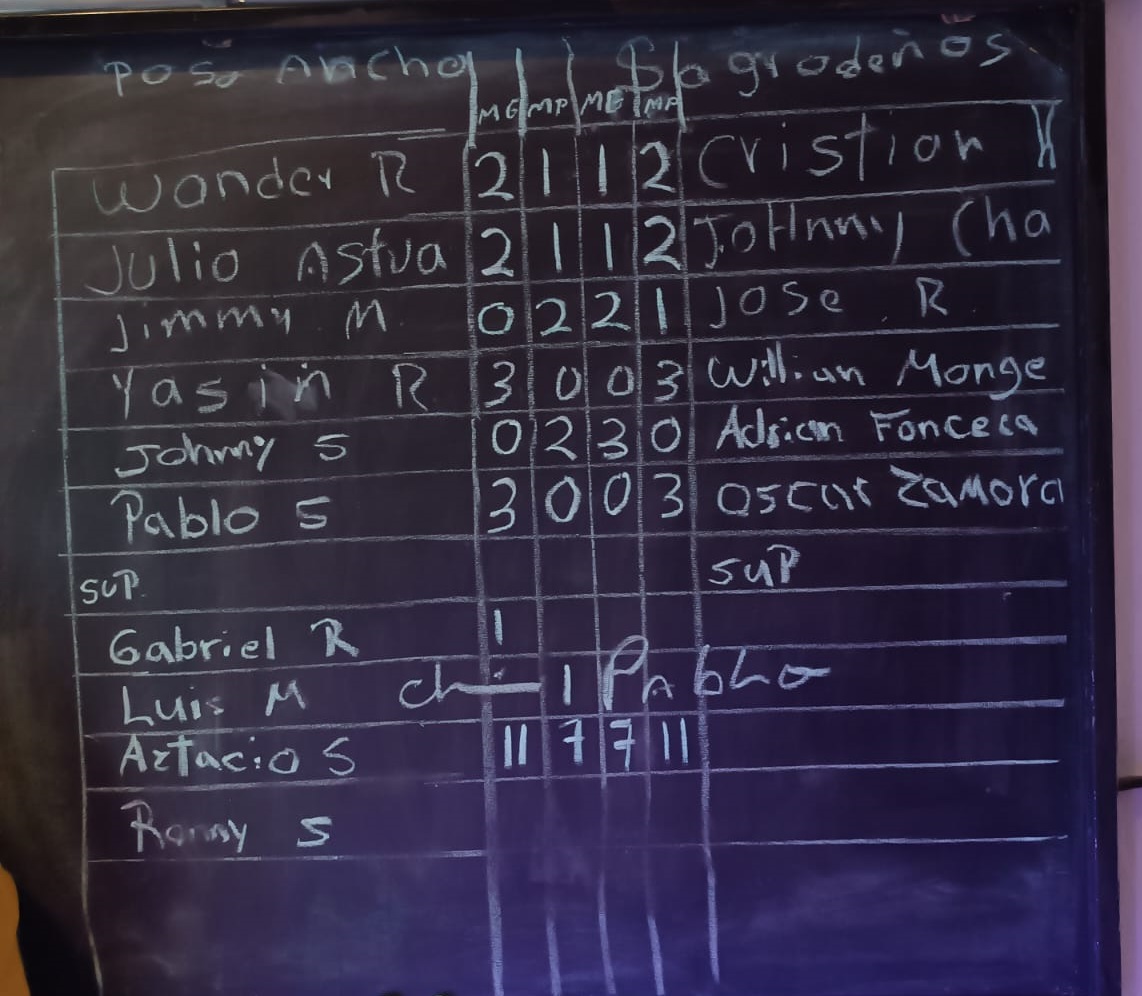 Poso Ancho Sagrodeños
MG MP MG MP
Wonder R 2 1 1 2 Cristian
Julio Astua 2 1 1 2 JoHnny Cha
Jimmy M 0 2 2 1 Jose R
Yasin R 3 0 0 3 Willian Monge
Johnny S 0 2 3 0 Adrian Fonceca
Pablo S 3 0 0 3 Oscar Zamora
sup. sup
Gabriel R 1
Luis M 1 Pabho
Aztacio S 11 7 7 11
Ronny S